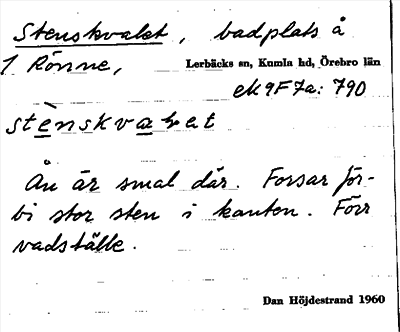 Stenskvalet, badplats å
1 Rönne,
Lerbäcks sn, Kumla hd, Örebro län
ek 9F7a: 790
stènskvaʈet
Ån är smal där. Forsar för-
bi stor sten i kanten. Förr
vadställe.
Dan Höjdestrand 1960